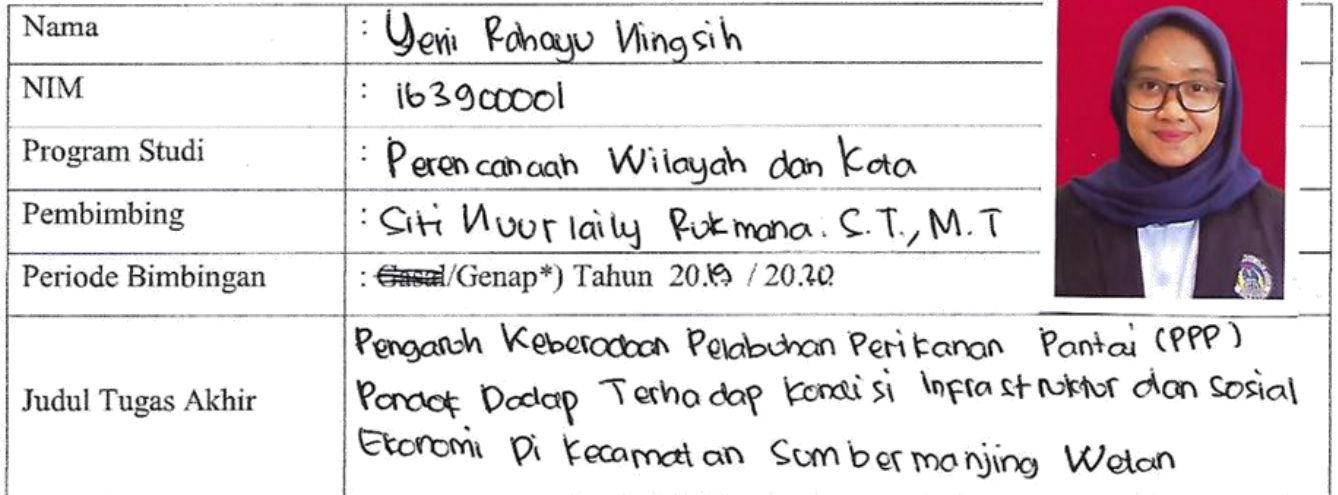 Nama : Yeni Rahayu Ningsih
NIM : 163900001
Program Studi : Perencanaan Wilayah dan Kota
Pembimbing : Siti Nuurlaily Rukmana. S.T., M.T
Periode Bimbingan : Gasal/Genap*) Tahun 20.19 / 20.20
Pengaruh Keberadaan Pelabuhan Perikanan Pantai (PPP)
Judul Tugas Akhir Pondok Dadap Terhadap Kondisi Infrastruktur dan Sosial
Ekonomi Di Kecamatan Sumbermanjing Wetan